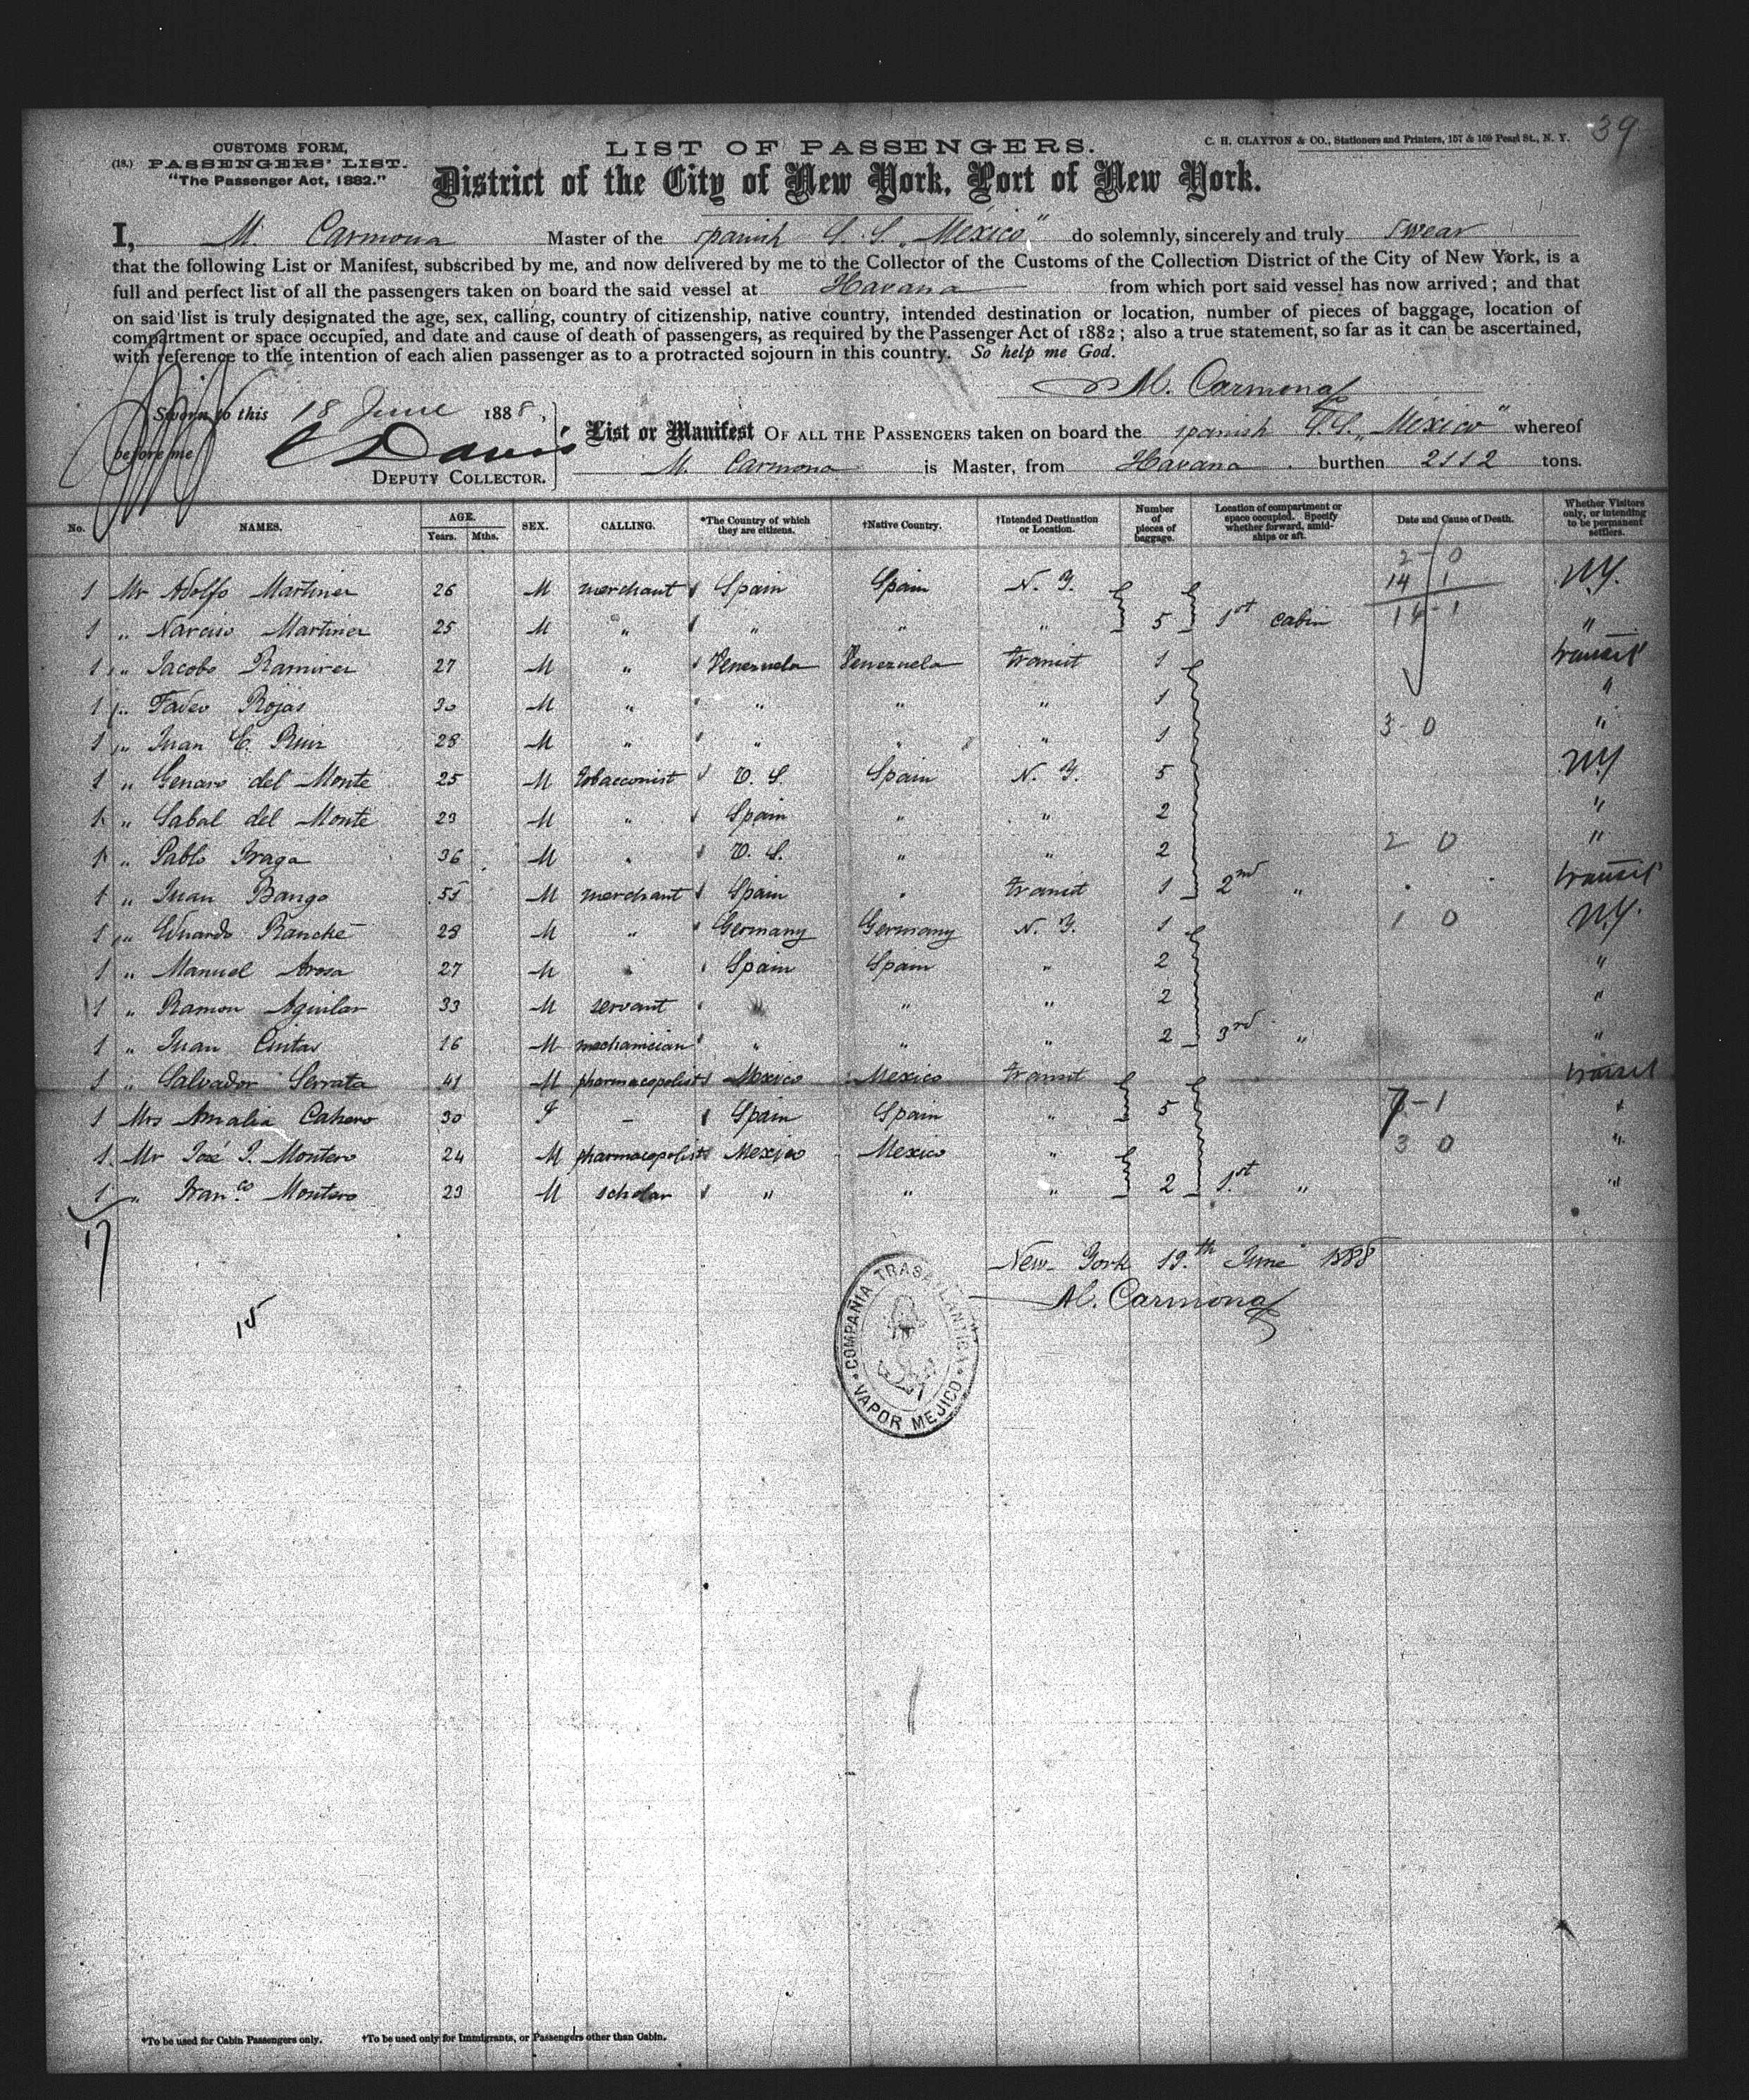 39
CUSTOMS FORM,
(18.) PASSENGERS' LIST.
"The Passenger Act, 1882."
LIST OF PASSENGERS.
C. H. CLAYTON & CO., Stationers and Printers, 157 & 159 Pearl St., N. Y.
District of the City of New York, Port of New York.
I, M. Carmona Master of the spanish S. S. "Mexico" do solemnly, sincerely and truly swear
that the following List or Manifest, subscribed by me, and now delivered by me to the Collector of the Customs of the Collection District of the City of New York, is a
full and perfect list of all the passengers taken on board the said vessel at Havana from which port said vessel has now arrived; and that
on said list is truly designated the age, sex, calling, country of citizenship, native country, intended destination or location, number of pieces of baggage, location of
compartment or space occupied, and date and cause of death of passengers, as required by the Passenger Act of 1882; also a true statement, so far as it can be ascertained,
with reference to the intention of each alien passenger as to a protracted sojourn in this country. So help me God.
M. Carmona
Sworn to this 18 June 1888,
before me Davis
DEPUTY COLLECTOR.
List or Manifest OF ALL THE PASSENGERS taken on board the spanish S.S. "Mexico" whereof
M. Carmona is Master, from Havana burthen 2112 tons.
No. NAMES. AGE. Years. Mths. SEX. CALLING. *The Country of which they are citizens. †Native Country. †Intended Destination or Location. Number of pieces of baggage. Location of compartment or space occupied. Specify whether forward, amidships or aft. Date and Cause of Death. Whether Visitors only, or intending to be permanent settlers.
2-0
1 Mr Adolfo Martinez 26 M merchant Spain Spain N. Y. 14 1 NY.
1 " Narciso Martinez 25 M " " " " 5 1st cabin 14-1 "
1 " Jacobo Ramirez 27 M " Venezuela Venezuela transit 1 transit
1 " Tadeo Rojas 30 M " " " " 1 "
1 " Juan C. Ruiz 28 M " " " " 1 3-0 "
1 " Genaro del Monte 25 M tobacconist U. S. Spain N. Y. 5 NY
1 " Sabal del Monte 29 M " Spain " " 2 "
1 " Pablo Fraga 36 M " U. S. " " 2 2 0 "
1 " Juan Bango 55 M merchant Spain " transit 1 2nd " transit
1 " Eduardo Ranché 28 M " Germany Germany N. Y. 1 1 0 NY.
1 " Manuel Arosa 27 M " Spain Spain " 2 "
1 " Ramon Aguilar 33 M servant " " " 2 "
1 " Juan Cintas 16 M mechanician " " " 2 3rd " "
1 " Salvador Serrata 41 M pharmacopolist Mexico Mexico transit transit
1 Mrs Amalia Cahero 30 F - Spain Spain " 5 7-1 "
1 Mr José I. Montero 24 M pharmacopolist Mexico Mexico " 3 0 "
1 " Franco Montero 29 M scholar " " " 2 1st " "
17
New-York 19th June 1888
M. Carmona
15
COMPAÑIA TRASATLANTICA
VAPOR MEJICO
*To be used for Cabin Passengers only. †To be used only for Immigrants, or Passengers other than Cabin.